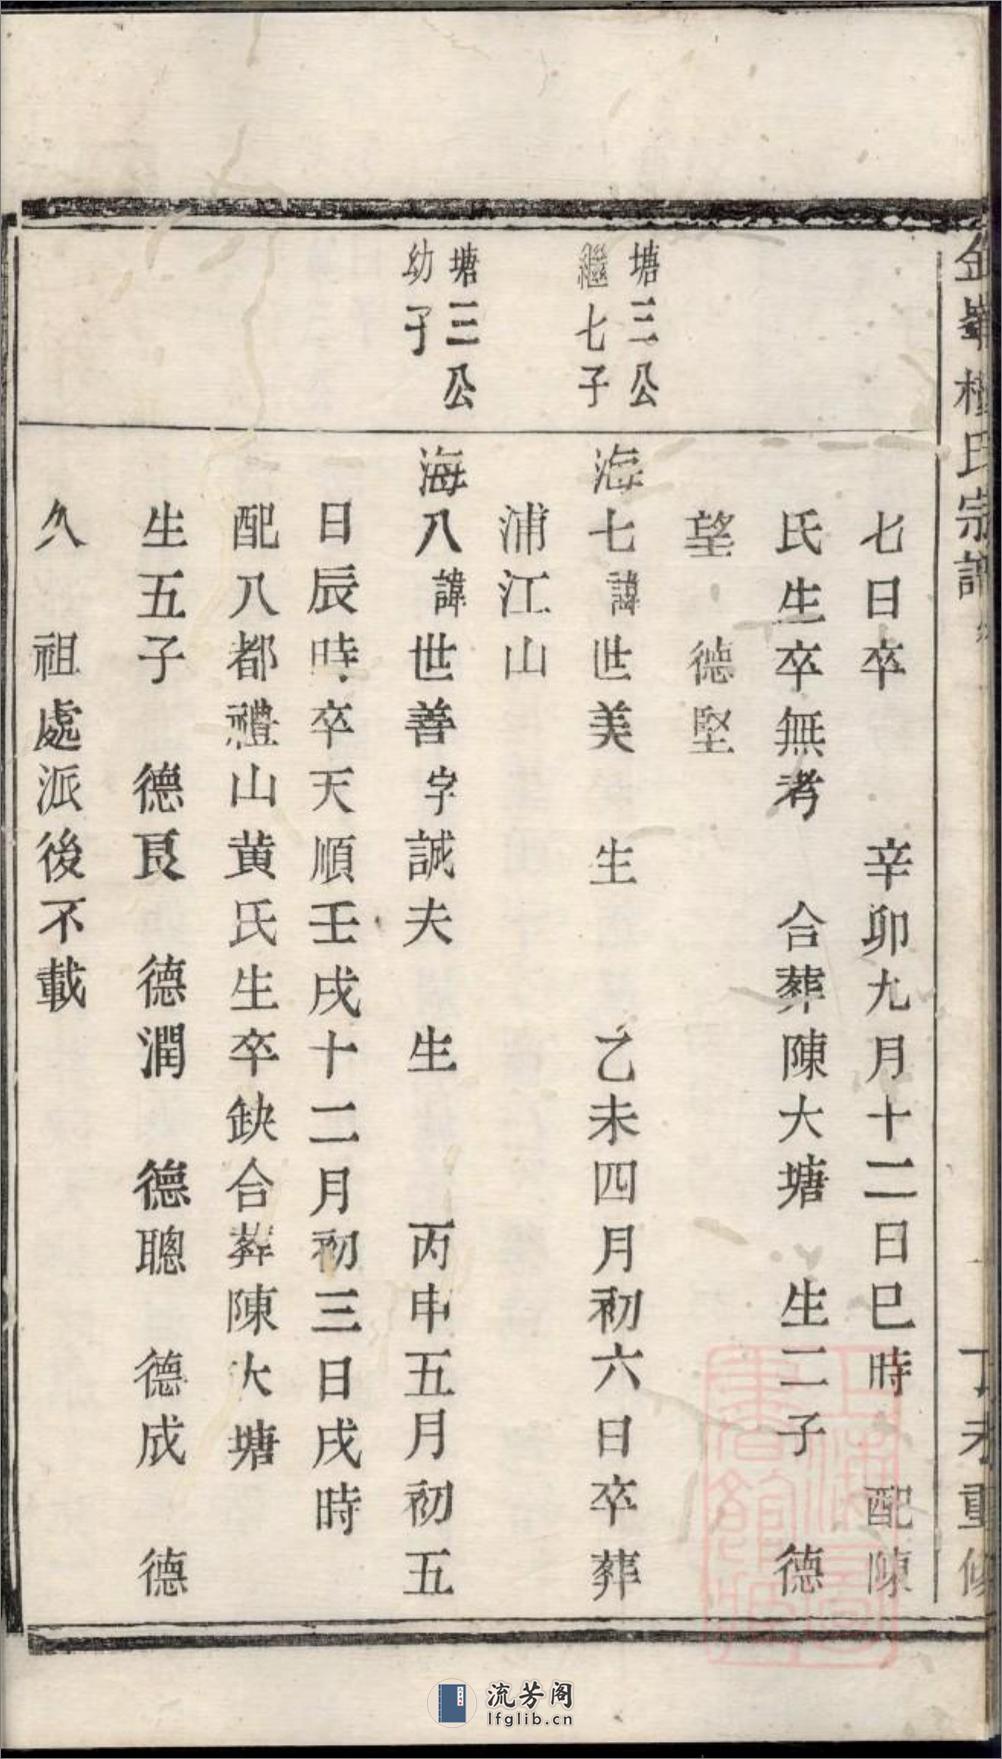 七日卒　辛卯九月十二日巳時　配陳
氏生卒無考　合葬陳大塘　生二子　德
望　德堅
塘三公
繼七子
海七諱世美　生　乙未四月初六日卒葬
浦江山
塘三公
幼子
海八諱世善字誠夫　生　丙申五月初五
日辰時卒天順壬戌十二月初三日戌時
配八都禮山黄氏生卒缺合葬陳大塘
生五子　德良　德潤　德聰　德成　德
久　祖處派後不載
氏宗譜
重修
流芳阁
lfglib.cn